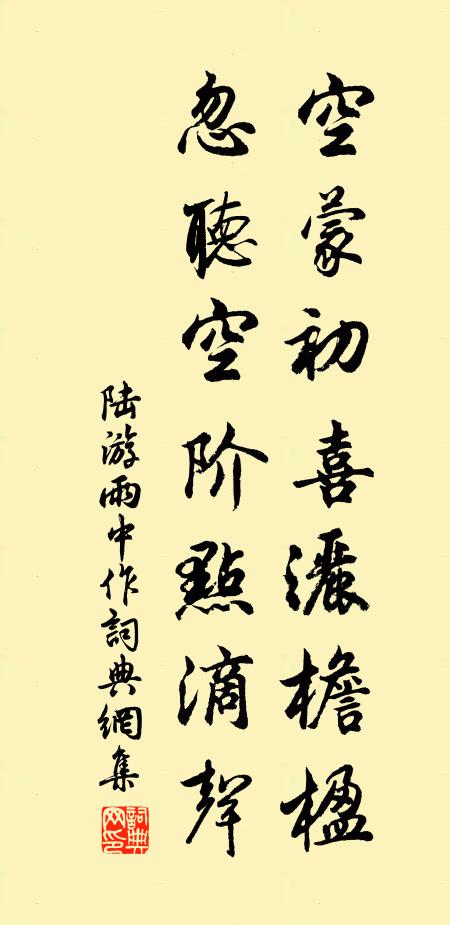 空蒙初喜灑檐楹
忽聽空阶點滴聲
陆游雨中作詞典網集
詞典網印